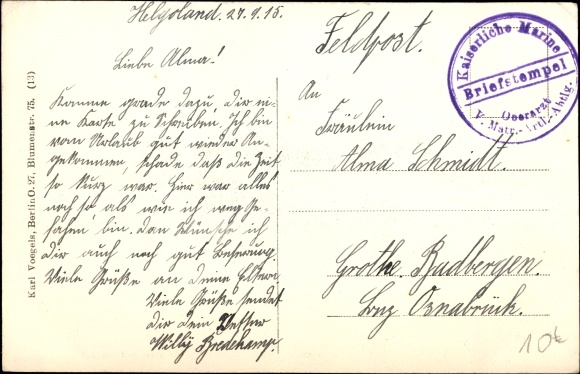 Helgoland. 27.9.15.
Liebe Alma!
Komme grade dazu, dir ei-
ne Karte zu schreiben. Ich bin
vom Urlaub gut wieder An-
gekommen, schade daß die Zeit
so kurz war. Hier war alles
noch so, als wie ich wegge-
fahren bin. Dan Wünsche ich
dir auch noch gut Besserung.
Viele Grüße an deine Eltern
Viele Grüße sendet
dir dein Vetter
Willy Bredehamp.
Feldpost.
An
Fräulein
Alma Schmidt.
Grothe. Badbergen.
Bez Osnabrück.
Kaiserliche Marine
Briefstempel
Oberarzt
V. Matr.-Artl.-Abtlg.
Karl Voegels, Berlin O. 27, Blumenstr. 75. (13)
10€